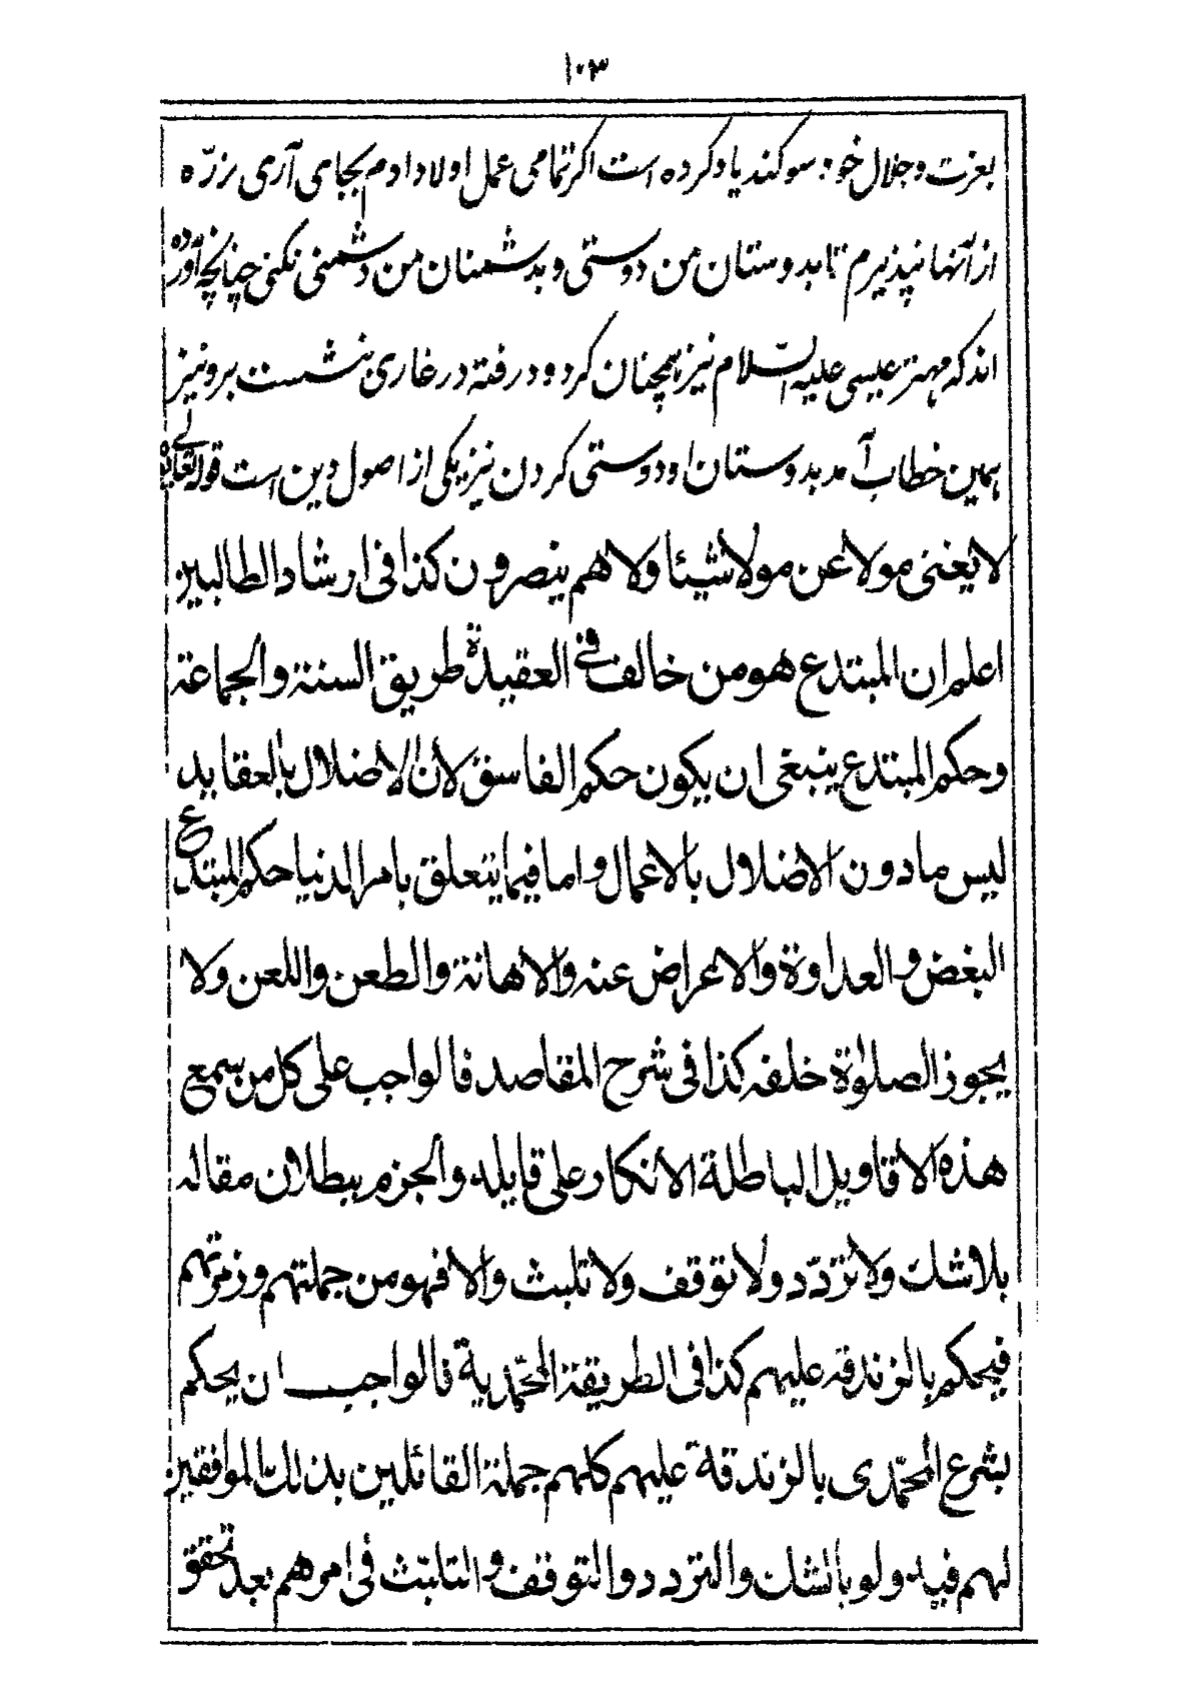 ۱۰۳
بعزت و جلال خود سوکند یاد کرده است اکر تمامی عمل اولاد ادم بجای آری برزّه
از آنها نپذیرم تا بدوستان من دوستی و بدشمنان من دشمنی نکنی چنانچه آورده
اند که مهتر عیسی علیه السّلام نیز همچنان کرد و در رفته در غاری بنشست برو نیز
همین خطاب آمد بدوستان او دوستی کردن نیز یکی از اصول دین است قوله تعالی
لا یغنی مولا عن مولا شیئا ولا هم ینصرون کذا فی ارشاد الطالبین
اعلم ان المبتدع هو من خالف فی العقیدة طریق السنة والجماعة
وحکم المبتدع ینبغی ان یکون حکم الفاسق لأن الاضلال بالعقاید
لیس مادون الاضلال بالاعمال واما فیما یتعلق بامر الدنیا حکم المبتدع
البغض والعداوة والاعراض عنه والاهانة والطعن واللعن ولا
یجوز الصلوٰة خلفه کذا فی شرح المقاصد فالواجب علی کل من سمع
هذه الاقاویل الباطلة الانکار علی قایله والجزم ببطلان مقاله
بلاشک ولا تردّد ولا توقف ولا تلبث والا فهو من جملتهم وزمرتهم
فیحکم بالزندقه علیهم کذا فی الطریقة المحمّدیة فالواجب ان یحکم
بشرع المحمّدی بالزندقة علیهم کلهم جملة القائلین بذلک الموافقین
لهم فیه ولو بالشک والتردد والتوقف والتلبّث فی امرهم بعد تحقق